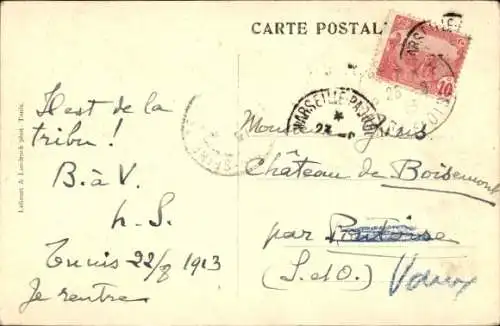 CARTE POSTALE
Lehnert & Landrock phot. Tunis.
Il est de la
tribu !
B. à V.
h. S.
Tunis 22/8 1913
Je rentre
10
MARSEILLE
Château de Boisemont
par Pontoise
(S. et O.)